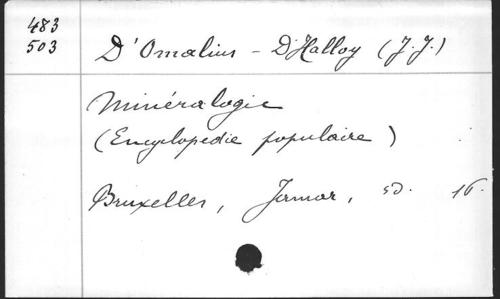 483
503
D'Omalius - D'Halloy (J.J.)
Minéralogie
(Encyclopedie populaire)
Bruxelles, Jamar, sd. 16.